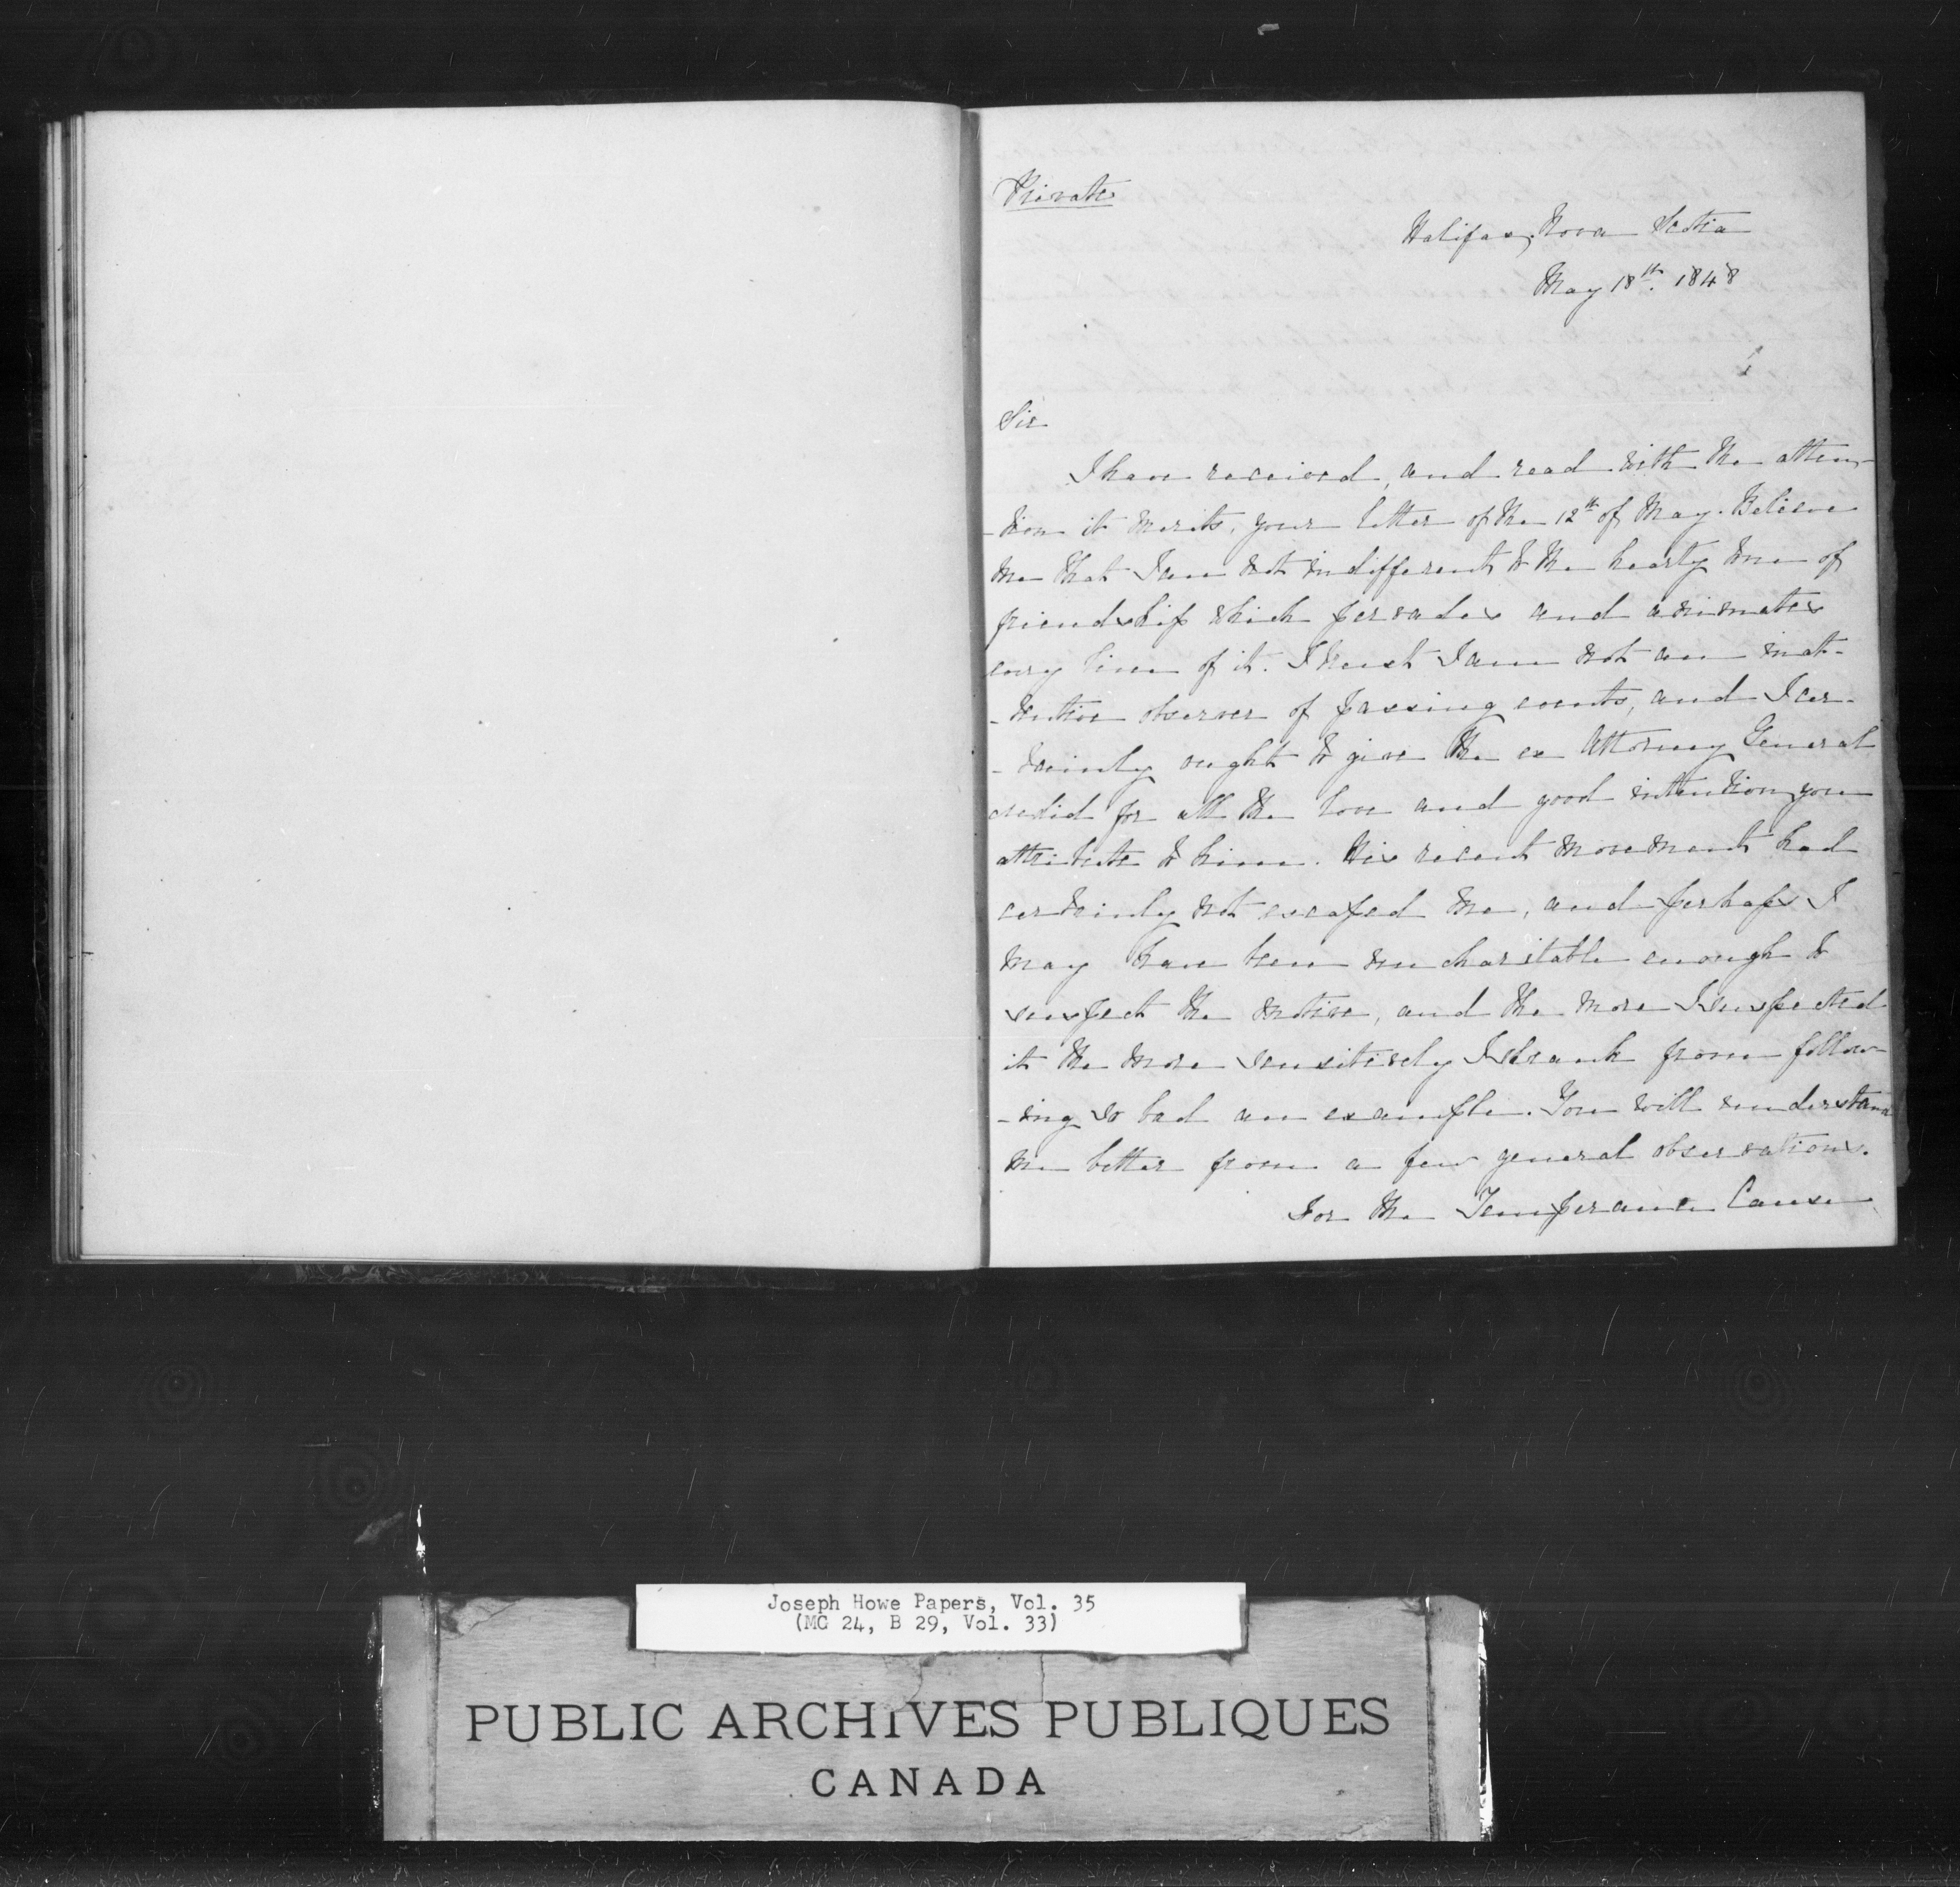 Private
Halifax, Nova Scotia
May 18th. 1848
1
Sir
I have received, and read with the atten-
-tion it merits, your letter of the 12th of May. Believe
me that I am not indifferent to the hearty tone of
friendship which pervades and animates
every line of it. I trust I am not an inat-
-tentive observer of passing events, and I cer-
-tainly ought to give the ex Attorney General
credid for all the love and good intention you
attribute to him. His recent movement had
certainly not escaped me, and perhaps I
may have been uncharitable enough to
suspect the motive, and the more I suspected
it the more sensitively I shrank from follow-
-ing so bad an example. You will understand
me better from a few general observations.
For the Temperance Cause
Joseph Howe Papers, Vol. 35
(MG 24, B 29, Vol. 33)
PUBLIC ARCHIVES PUBLIQUES
CANADA